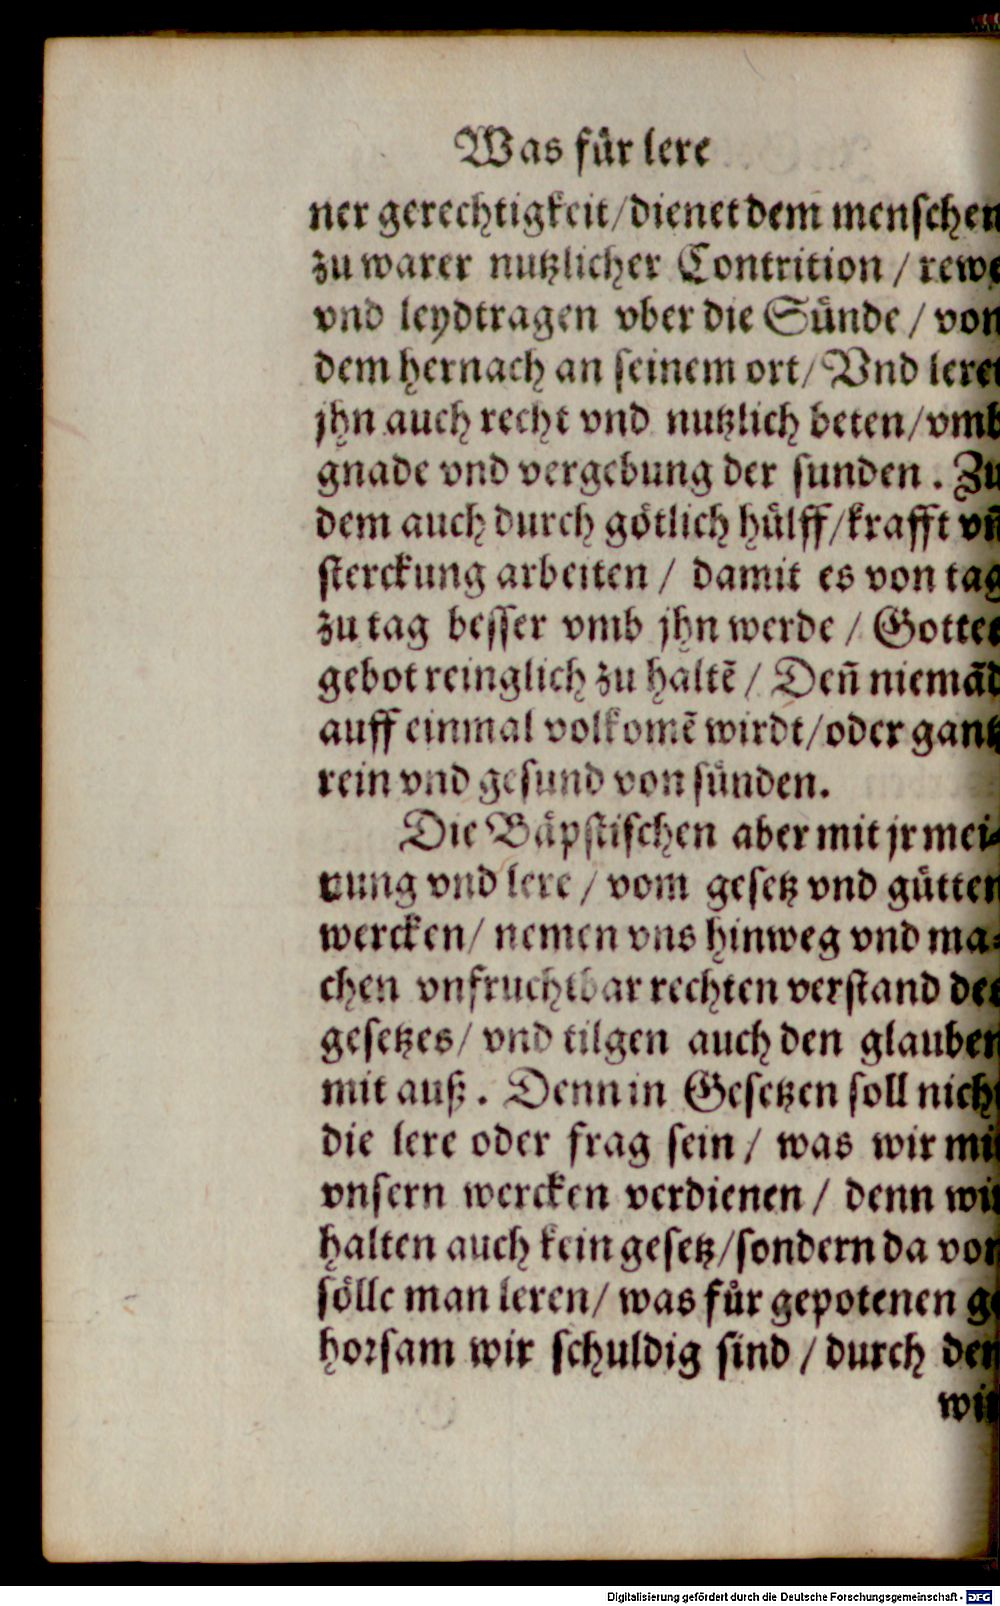 Was für lere
ner gerechtigkeit/dienet dem̄ menschen
zu warer nutzlicher Contrition / rewe
vnd leydtragen vber die Sünde / von
dem hernach an seinem ort/ Vnd leret
jhn auch recht vnd nutzlich beten/vmb
gnade vnd vergebung der sunden . Zu
dem auch durch götlich hülff/krafft vn̄
sterckung arbeiten / damit es von tag
zu tag besser vmb jhn werde / Gottes
gebot reinglich zu haltē / Den̄ niemād
auff einmal volkomē wirdt/oder gantz
rein vnd gesund von sünden.
Die Bäpstischen aber mit jr mei-
nung vnd lere / vom gesetz vnd gůtten
wercken/ nemen vns hinweg vnd ma-
chen vnfruchtbar rechten verstand des
gesetzes/ vnd tilgen auch den glauben
mit auß . Denn in Gesetzen soll nicht
die lere oder frag sein / was wir mit
vnsern wercken verdienen / denn wir
halten auch kein gesetz/sondern da von
sölle man leren/ was für gepotenen ge
horsam wir schuldig sind / durch den
wir
Digitalisierung gefördert durch die Deutsche Forschungsgemeinschaft - DFG